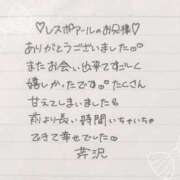 ♡レスポアールのお兄様♡
ありがとうございました
またお会い出来てすごしく
嬉しかったです。たくさん
甘えてしまいました
前より長い時間いちゃいちゃ
できて幸せでした
芹沢